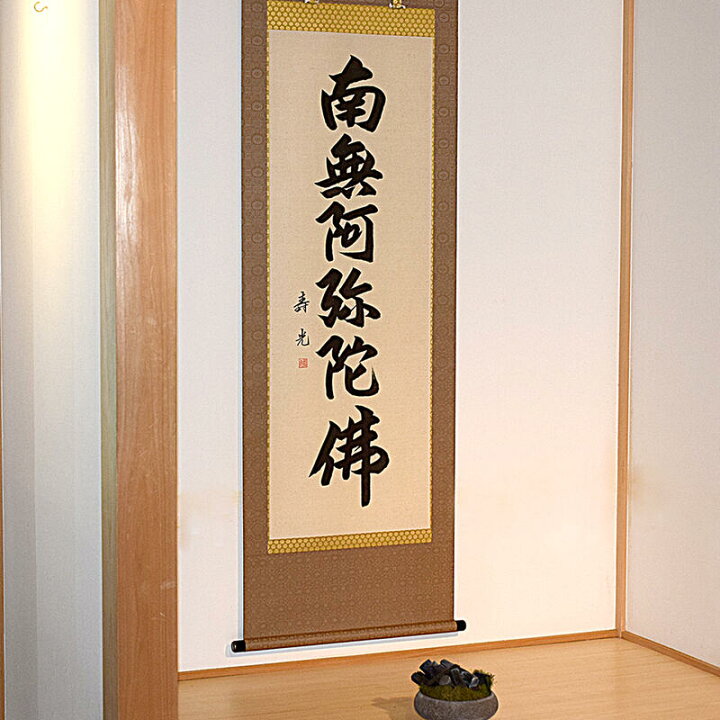 南無阿弥陀佛
寿光